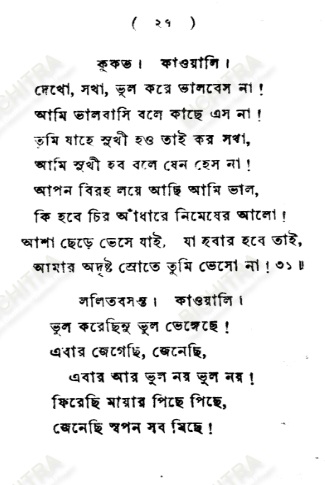 ( ২৭ )
কুকভ। কাওয়ালি।
দেখো, সখা, ভুল করে ভালবেস না !
আমি ভালবাসি বলে কাছে এস না !
তুমি যাহে সুখী হও তাই কর সখা,
আমি সুখী হব বলে যেন হেস না !
আপন বিরহ লয়ে আছি আমি ভাল,
কি হবে চির আঁধারে নিমেষের আলো !
আশা ছেড়ে ভেসে যাই, যা হবার হবে তাই,
আমার অদৃষ্ট স্রোতে তুমি ভেসো না ! ৩১ ॥
ললিতবসন্ত। কাওয়ালি।
ভুল করেছিনু ভুল ভেঙ্গেছে !
এবার জেগেছি, জেনেছি,
এবার আর ভুল নয় ভুল নয় !
ফিরেছি মায়ার পিছে পিছে,
জেনেছি স্বপন সব মিছে !